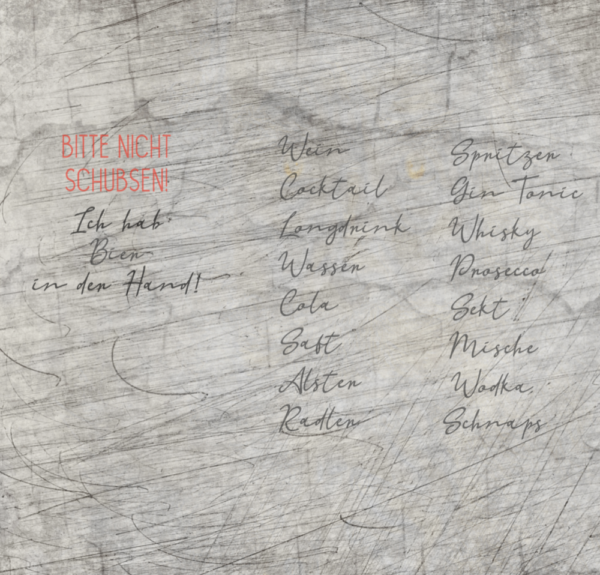 BITTE NICHT
SCHUBSEN!
Ich hab
Bier
in der Hand!
Wein
Cocktail
Longdrink
Wasser
Cola
Saft
Alster
Radler
Spritzer
Gin Tonic
Whisky
Prosecco
Sekt
Mische
Wodka
Schnaps